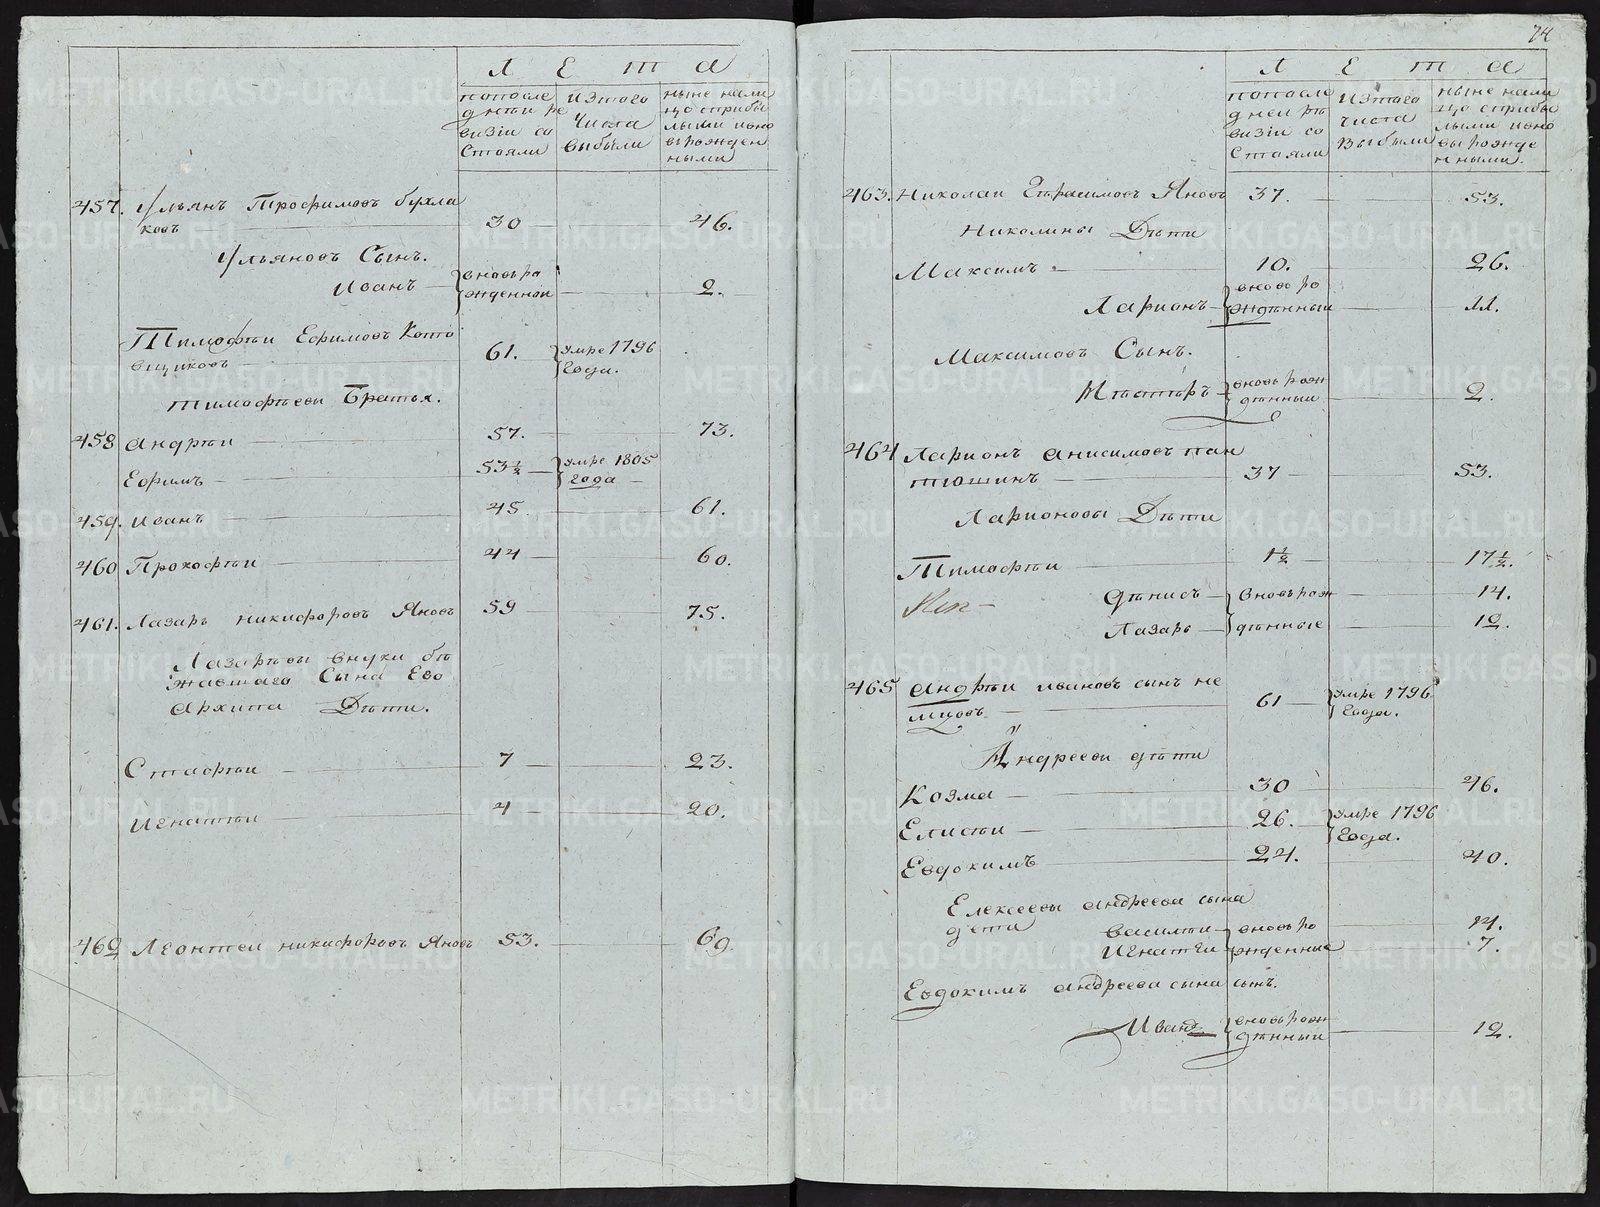 Л Е т а
попосле
дней ре
визіи со
стояли
изтаго
числа
выбыли
ныне нали
цо сприбы
лыми ново
вырожден
ными
457. Ульянъ Трофимовъ бухла
ковъ 30 46.
Ульяновъ Сынъ.
Иванъ вновьро
жденной 2.
Тимофѣи Ефимовъ Кото
вщиковъ 61. умре 1796
года.
тимофѣеви Братья.
458 андрѣи 57. 73.
Ефимъ 53½ умре 1805
года
459. иванъ 45 61.
460 Прокофѣи 44 60.
461. Лазарь никифоровъ Яновъ 59 75.
Лазарѣвы внуки бѣ
жавшаго Сына Ево
архипа Дѣти.
Стафѣи 7 23.
игнатѣи 4 20.
462 Леонтеи никифоровъ Яновъ 53. 69.
74
Л Е т а
попосле
дней рѣ
визіи со
стояли
изтаго
числа
выбыли
ныне нали
цо сприбы
лыми ново
вырожде
нными.
463. Николаи Герасимовъ Яновъ 37. 53.
Николины Дѣти
Максимъ 10. 26.
Ларионъ вновьро
ждѣнныи 11.
Максимовъ Сынъ.
Нѣстѣръ вновьрож
дѣнныи 2.
464 Ларионъ анисимовъ пан
тюшинъ 37 53.
Ларионовы Дѣти
Тимофѣи 1½ 17½.
дѣнисъ вновьрож 14.
Лазарь дѣнные 12.
465 андрѣи ивановъ сынъ не
мцовъ 61 умре 1796
года.
Андрееви дѣти
Козма 30 46.
Елисѣи 26. умре 1796
года.
Евдокимъ 24. 40.
Елексеевы андреева сына
дети василѣи вновьро 14.
игнатѣи жденние 7.
Евдокимъ андреева сына сынъ.
Иванъ вновьрож
дѣнныи 12.
METRIKI.GASO-URAL.RU